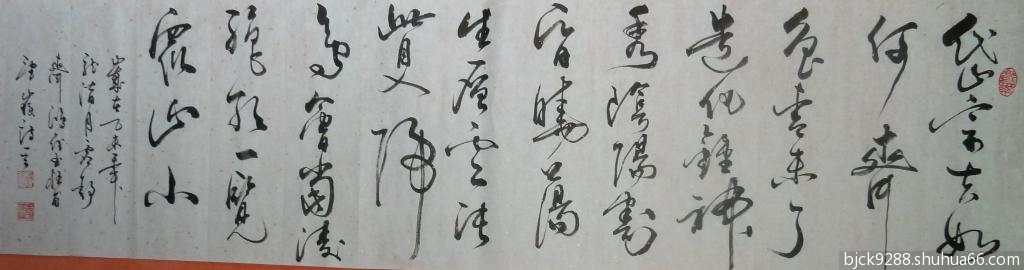 岱宗夫如
何齊
魯青未了
造化鍾神
秀陰陽割
昏曉蕩
生層云決
眥入歸
鳥會當凌
絕頂一覽
眾山小
歲在乙未年
望嶽詩
bjck9288.shuhua66.com